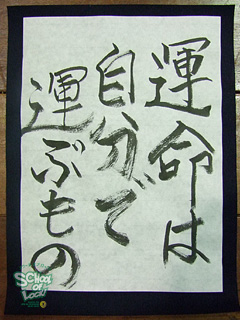 運命は
自分で
運ぶもの
SCHOOL
OF
LOCK!